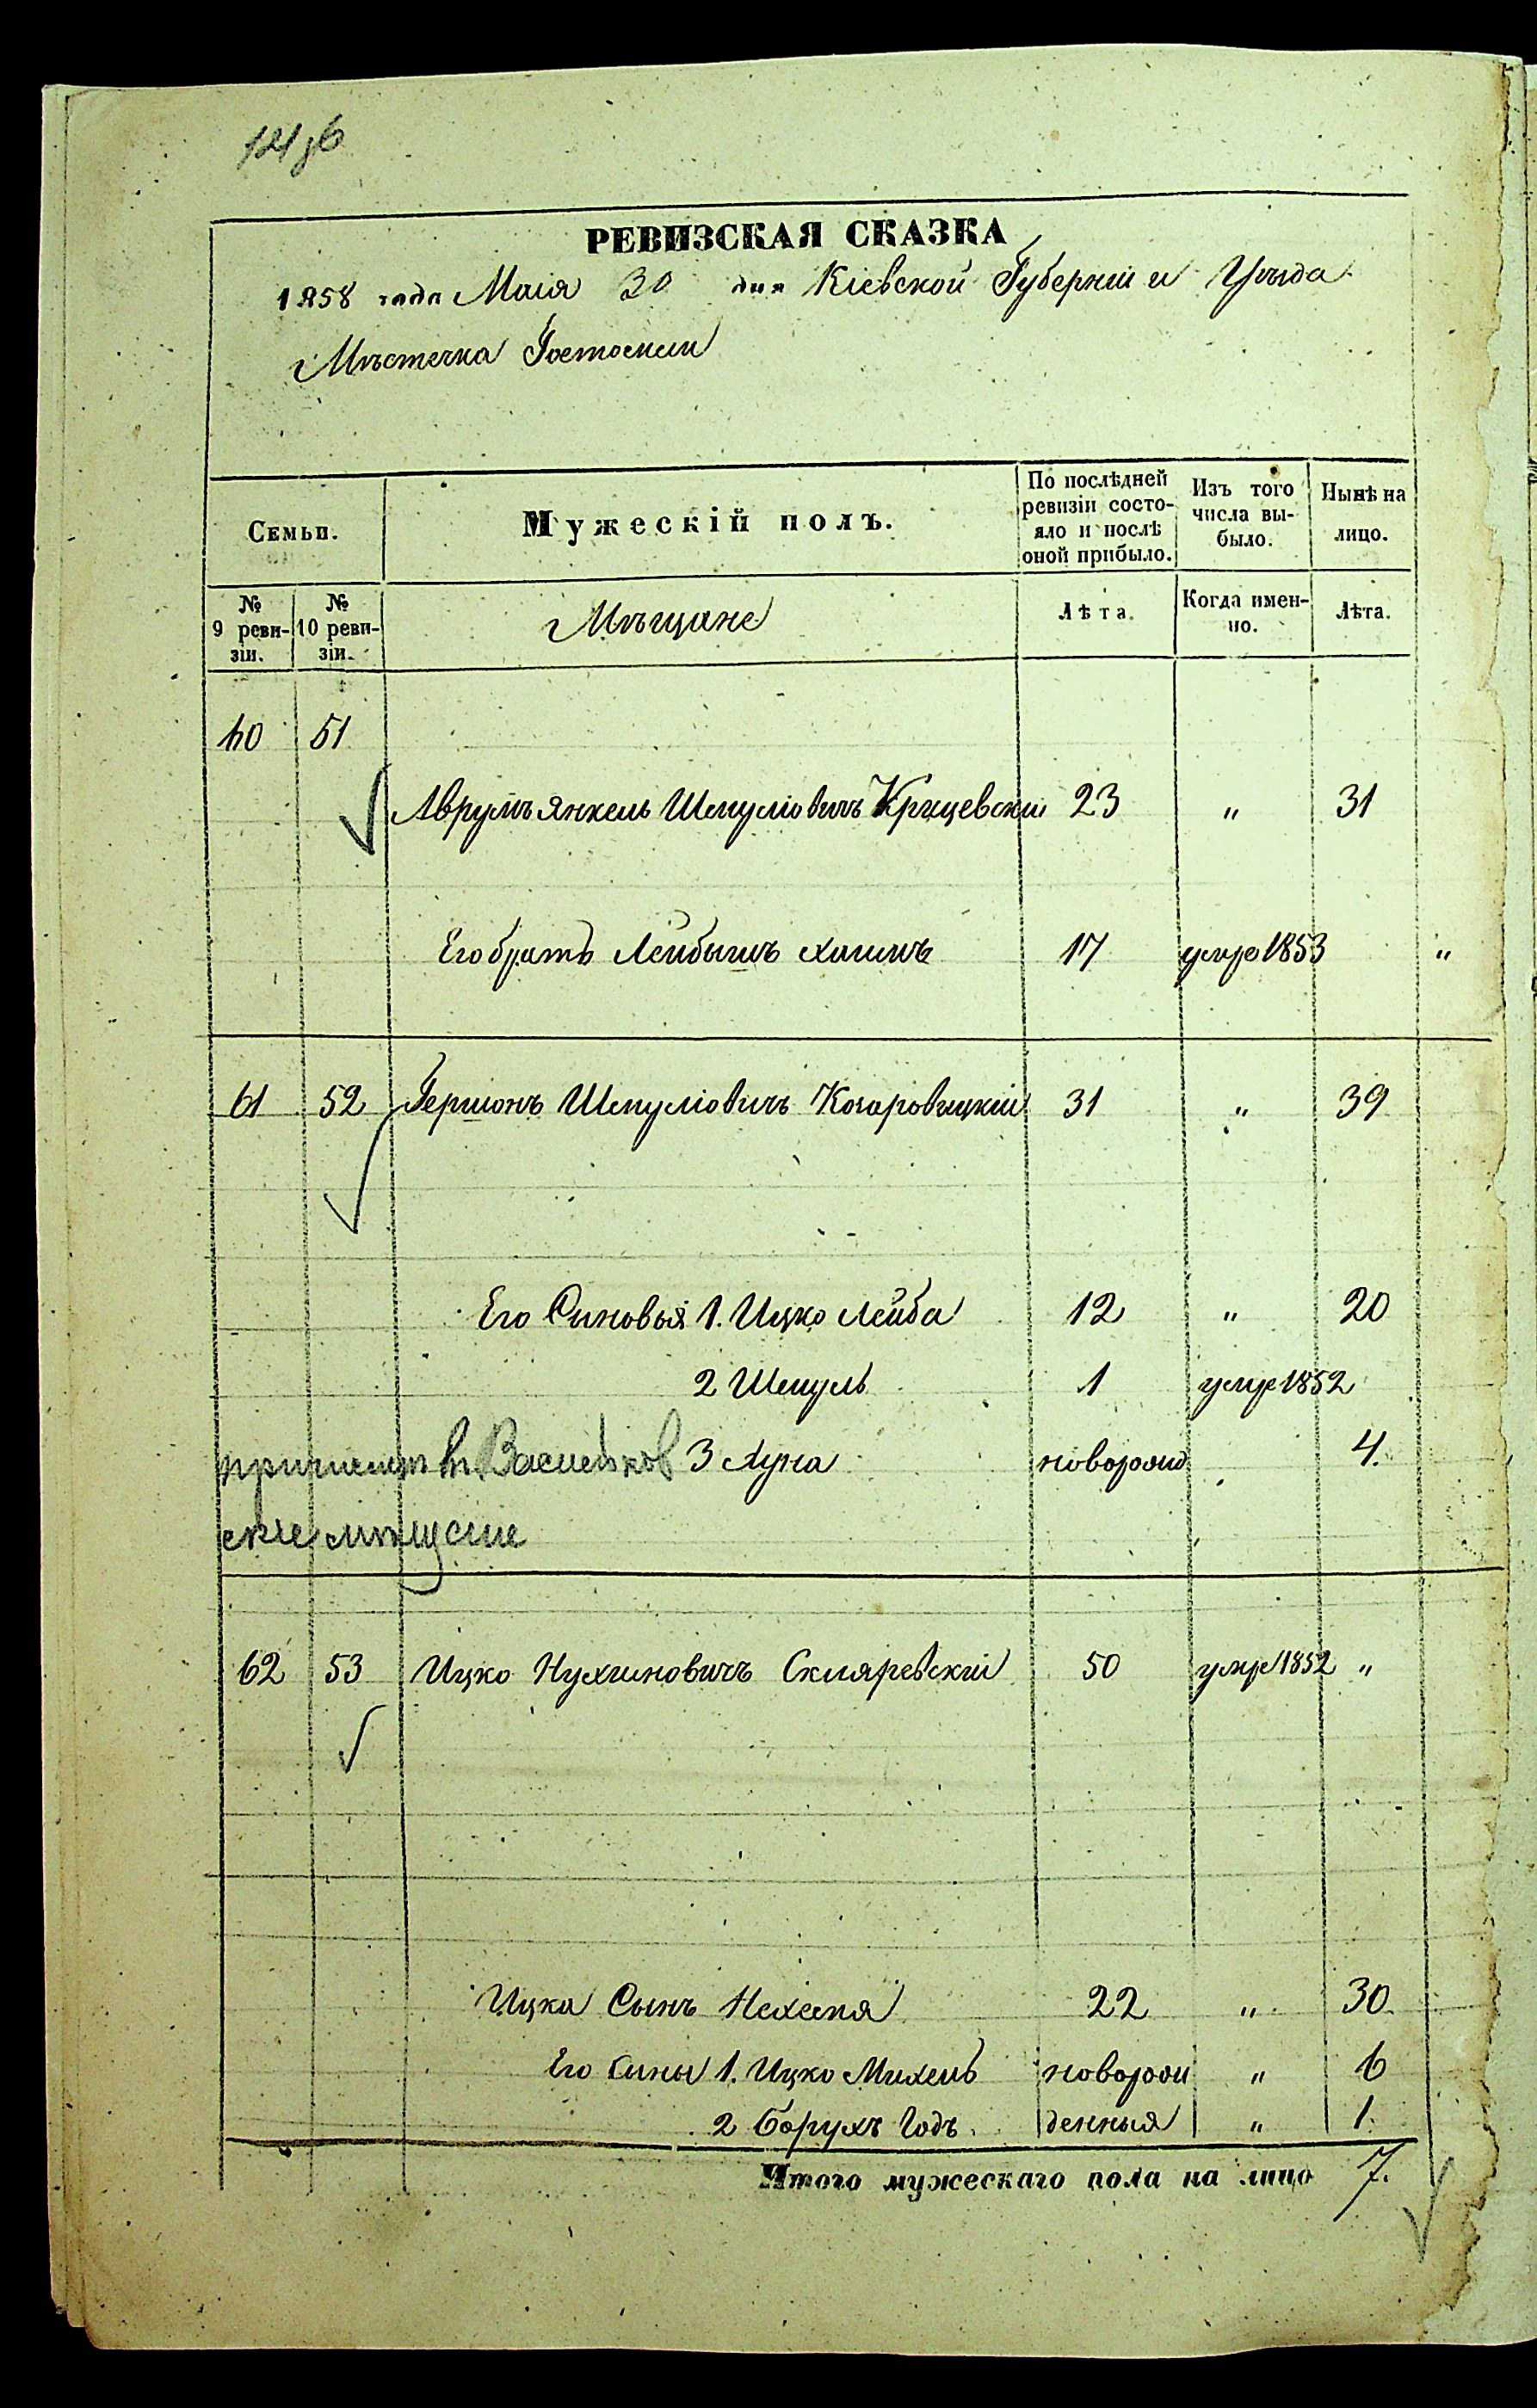 РЕВИЗСКАЯ СКАЗКА
1858 года Маія 30 дня Кіевской Губерніи и Уѣзда
Мѣстечка Гостомли
Семьи.
Мужескій полъ.
По послѣдней ревизіи состо-
яло и послѣ оной прибыло.
Изъ того числа вы-
было.
Нынѣ на лицо.
№ 9 реви-
зіи.
№ 10 реви-
зіи.
Мѣщане
Лѣта.
Когда имен-
но.
Лѣта.
60 51
Аврумъ Янкель Шмуліовичъ Крицевскій 23 " 31
Его братъ Лейбышъ Хаимъ 17 умре 1853 "
61 52 Гершонъ Шмуліовичъ Козаровицкій 31 " 39
Его Сыновья 1. Ицко Лейба 12 " 20
2 Шмуль 1 умре 1852
въ Васильков 3 Луна новорожд 4.
ские
62 53 Ицко Нухимовичъ Скляревскій 50 умре 1852 "
Ицка Сынъ Нехемя 22 " 30
Его сыны 1. Ицко Михель новорож " 6
2 Борухъ Годъ денныя " 1.
Итого мужескаго пола на лицо 7.